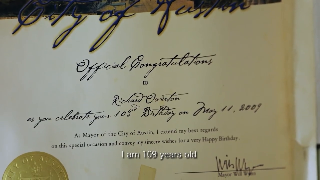 City of Austin
Official Congratulations
to
Richard Overton
as you celebrate your 103rd Birthday on May 11, 2009
As Mayor of the City of Austin, I extend my best regards
on this special occasion and convey my sincere wishes for a very Happy Birthday.
I am 109 years old
Mayor Will Wynn